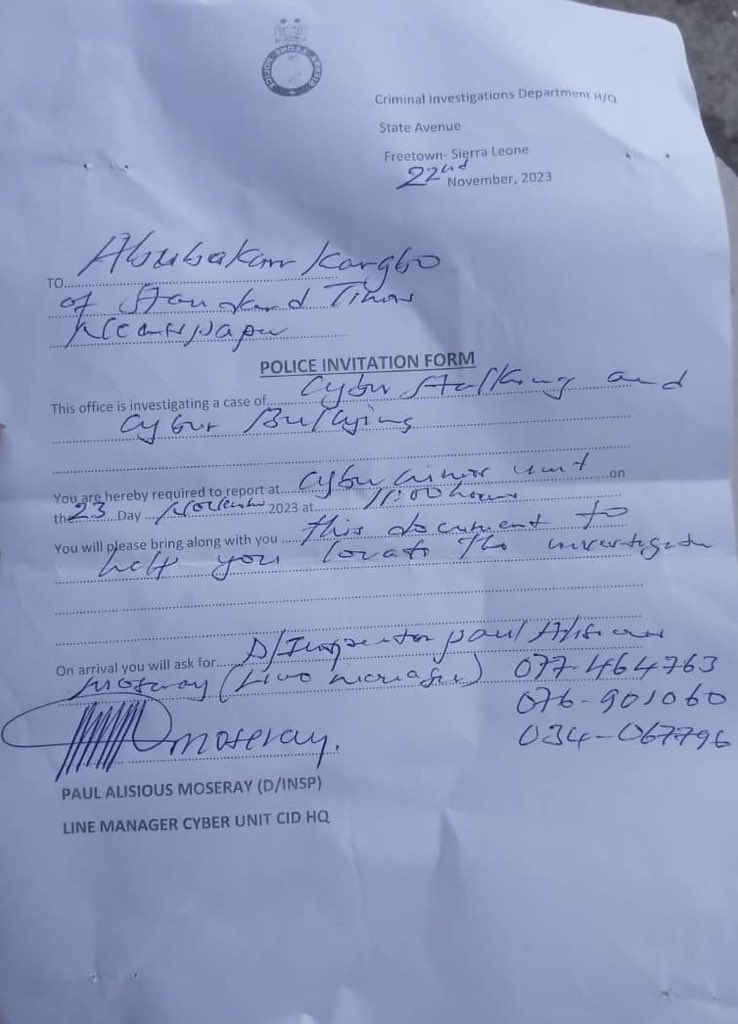 SIERRA LEONE POLICE
Criminal Investigations Department H/Q
State Avenue
Freetown- Sierra Leone
22nd November, 2023
Abubakarr Kargbo
TO
of Standard Times
Newspaper
POLICE INVITATION FORM
This office is investigating a case of Cyber Stalking and
Cyber Bullying
You are hereby required to report at Cyber Crimes unit on
the 23 Day November 2023 at 11:00 hours
You will please bring along with you this document to
help you locate the investigator
On arrival you will ask for D/Inspector Paul Alisious
Moseray (Line Manager) 077-464763
076-901060
034-067796
Moseray.
PAUL ALISIOUS MOSERAY (D/INSP)
LINE MANAGER CYBER UNIT CID HQ